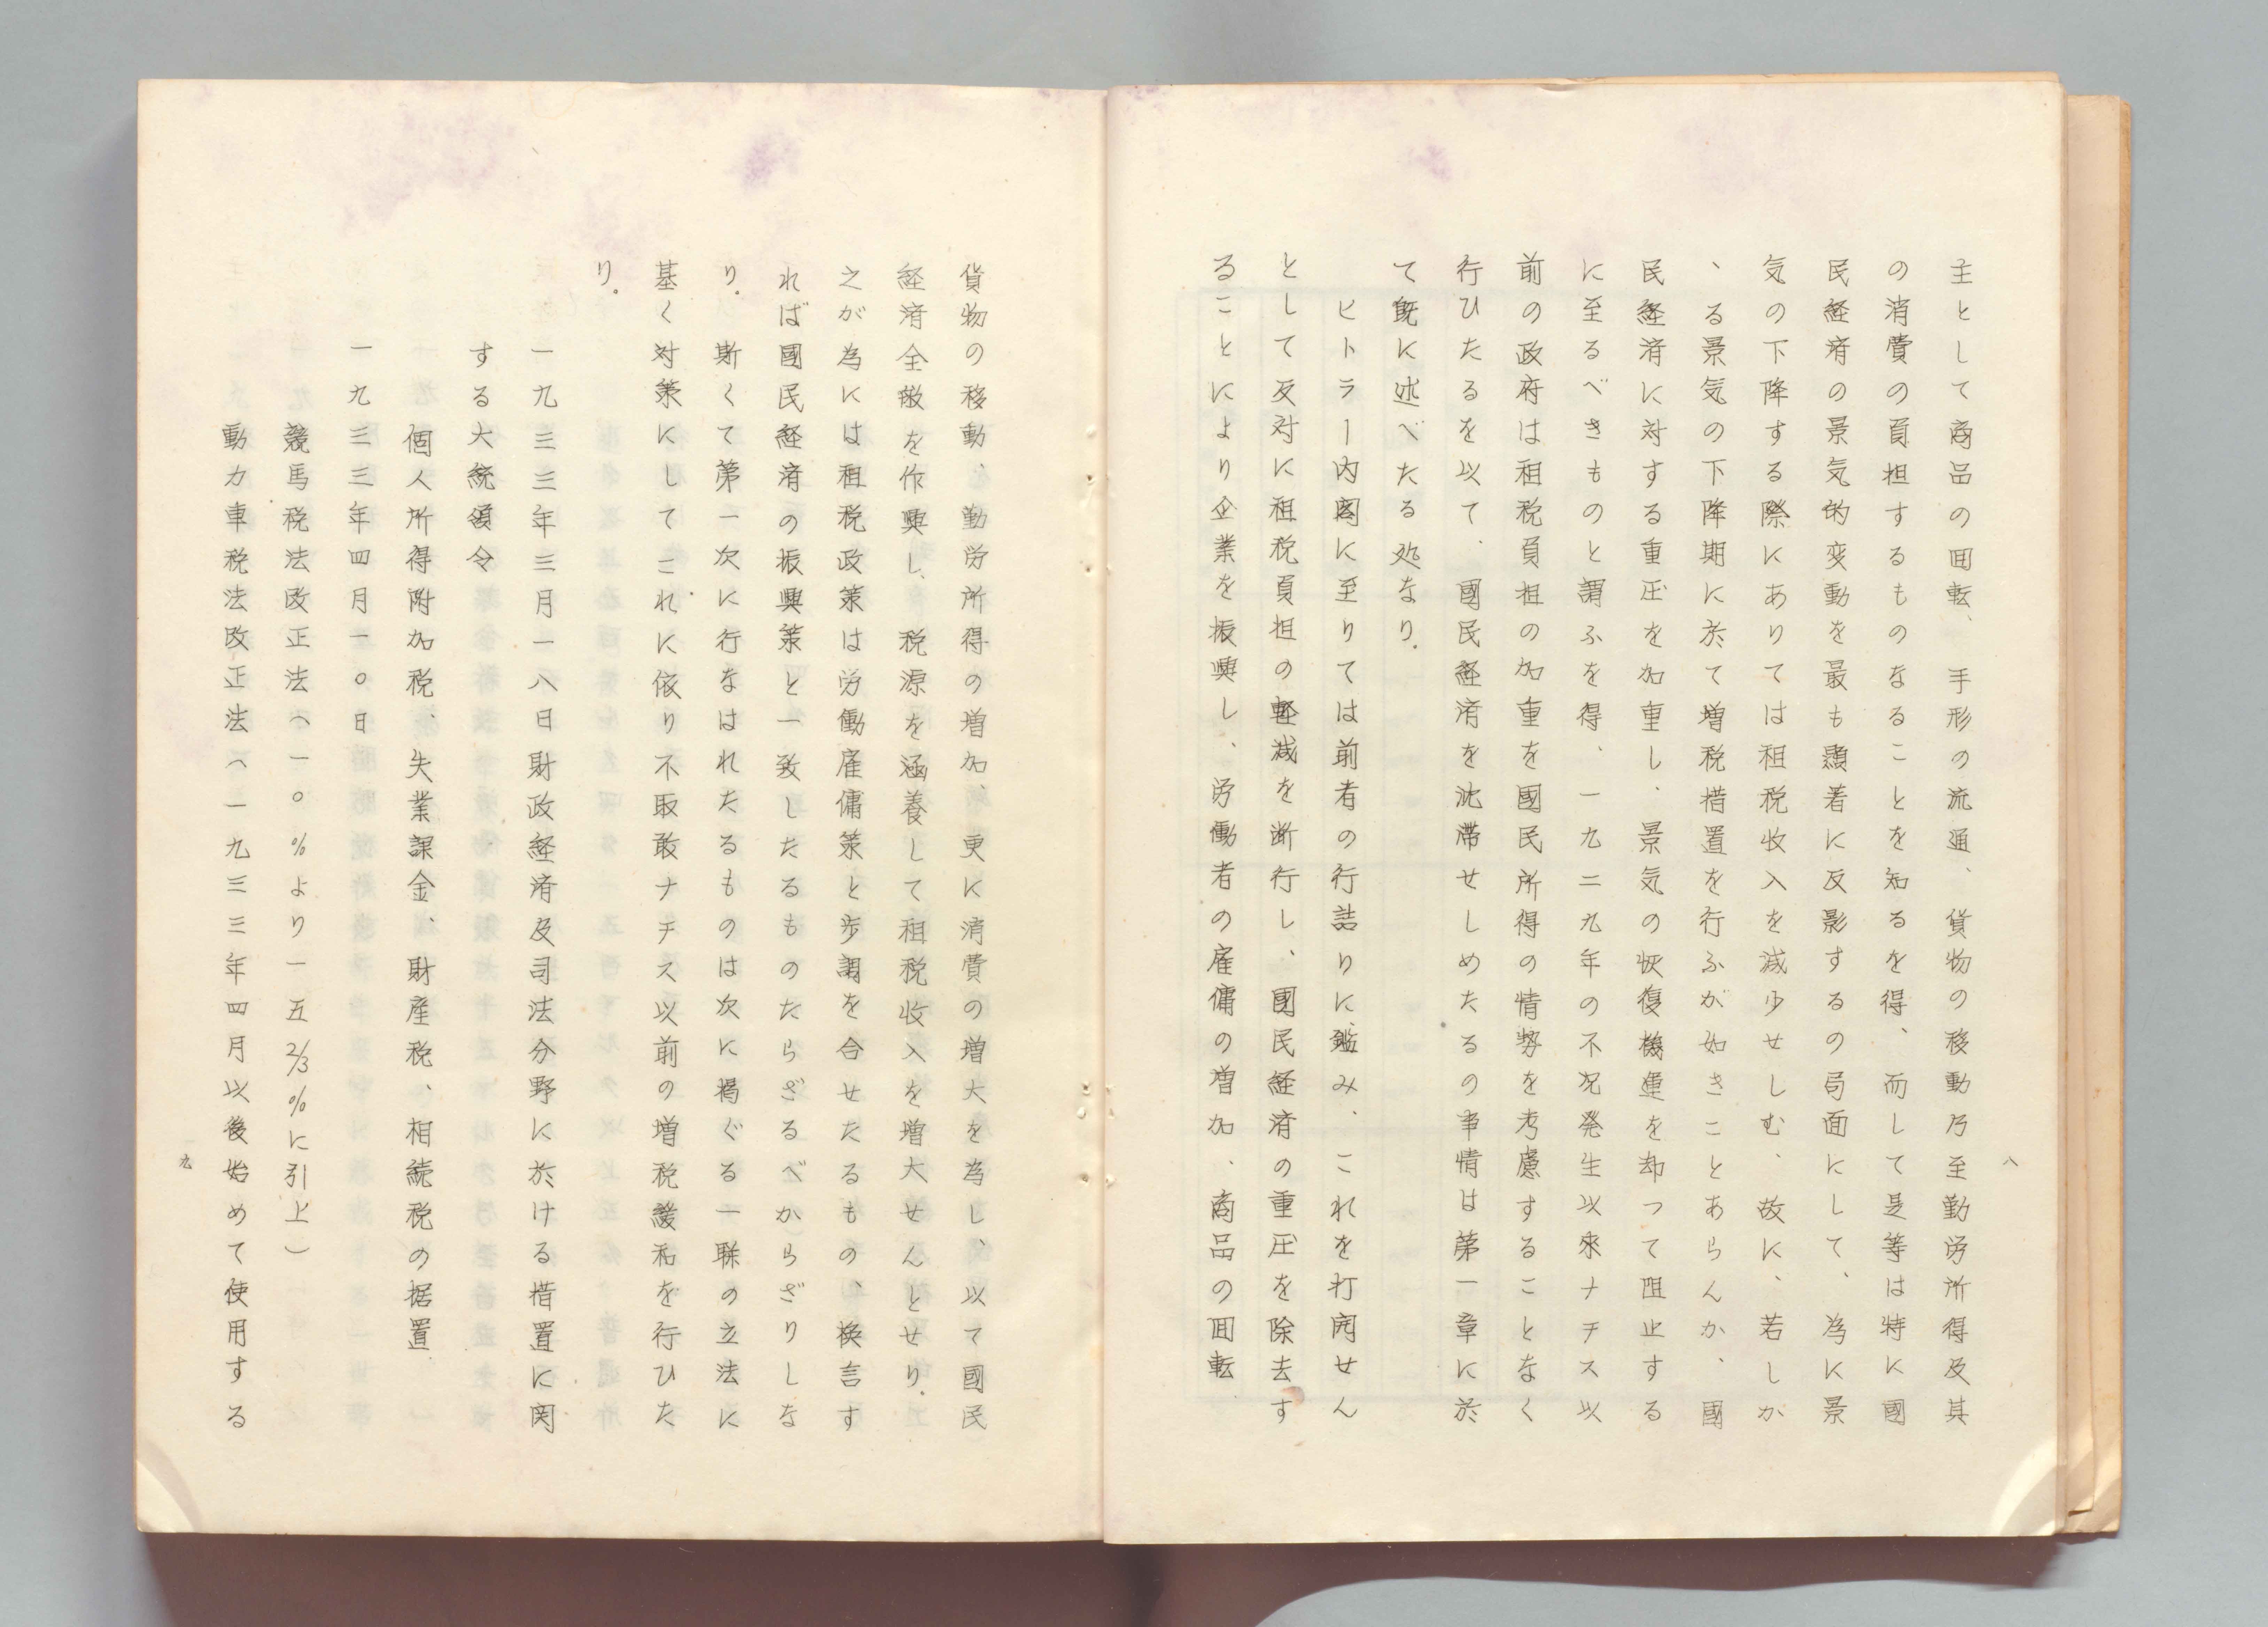 八
主として商品の回転、手形の流通、貨物の移動乃至勤労所得及其
の消費の負担するものなることを知るを得、而して是等は特に國
民経済の景気的変動を最も顕著に反影するの局面にして、為に景
気の下降する際にありては租税收入を減少せしむ、故に、若しか
ゝる景気の下降期に於て増税措置を行ふが如きことあらんか、國
民経済に対する重圧を加重し、景気の恢復機運を却つて阻止する
に至るべきものと謂ふを得、一九二九年の不況発生以來ナチス以
前の政府は租税負担の加重を國民所得の情勢を考慮することなく
行ひたるを以て、國民経済を沈滞せしめたるの事情は第一章に於
て既に述べたる処なり。
ヒトラー内閣に至りては前者の行詰りに鑑み、これを打開せん
として反対に租税負担の軽減を断行し、國民経済の重圧を除去す
ることにより企業を振興し、労働者の雇傭の増加、商品の回転、
貨物の移動、勤労所得の増加、更に消費の増大を為し、以て國民
経済全般を作興し、税源を涵養して租税收入を増大せんとせり。
之が為には租税政策は労働雇傭策と歩調を合せたるもの、換言す
れば國民経済の振興策と一致したるものたらざるべからざりしな
り。斯くて第一次に行なはれたるものは次に掲ぐる一聯の立法に
基く対策にしてこれに依り不取敢ナチス以前の増税緩和を行ひた
り。
一九三三年三月一八日財政経済及司法分野に於ける措置に関
する大統領令
個人所得附加税、失業課金、財産税、相続税の据置
一九三三年四月一〇日
競馬税法改正法（一〇％より一五2/3％に引上）
動力車税法改正法（一九三三年四月以後始めて使用する
九